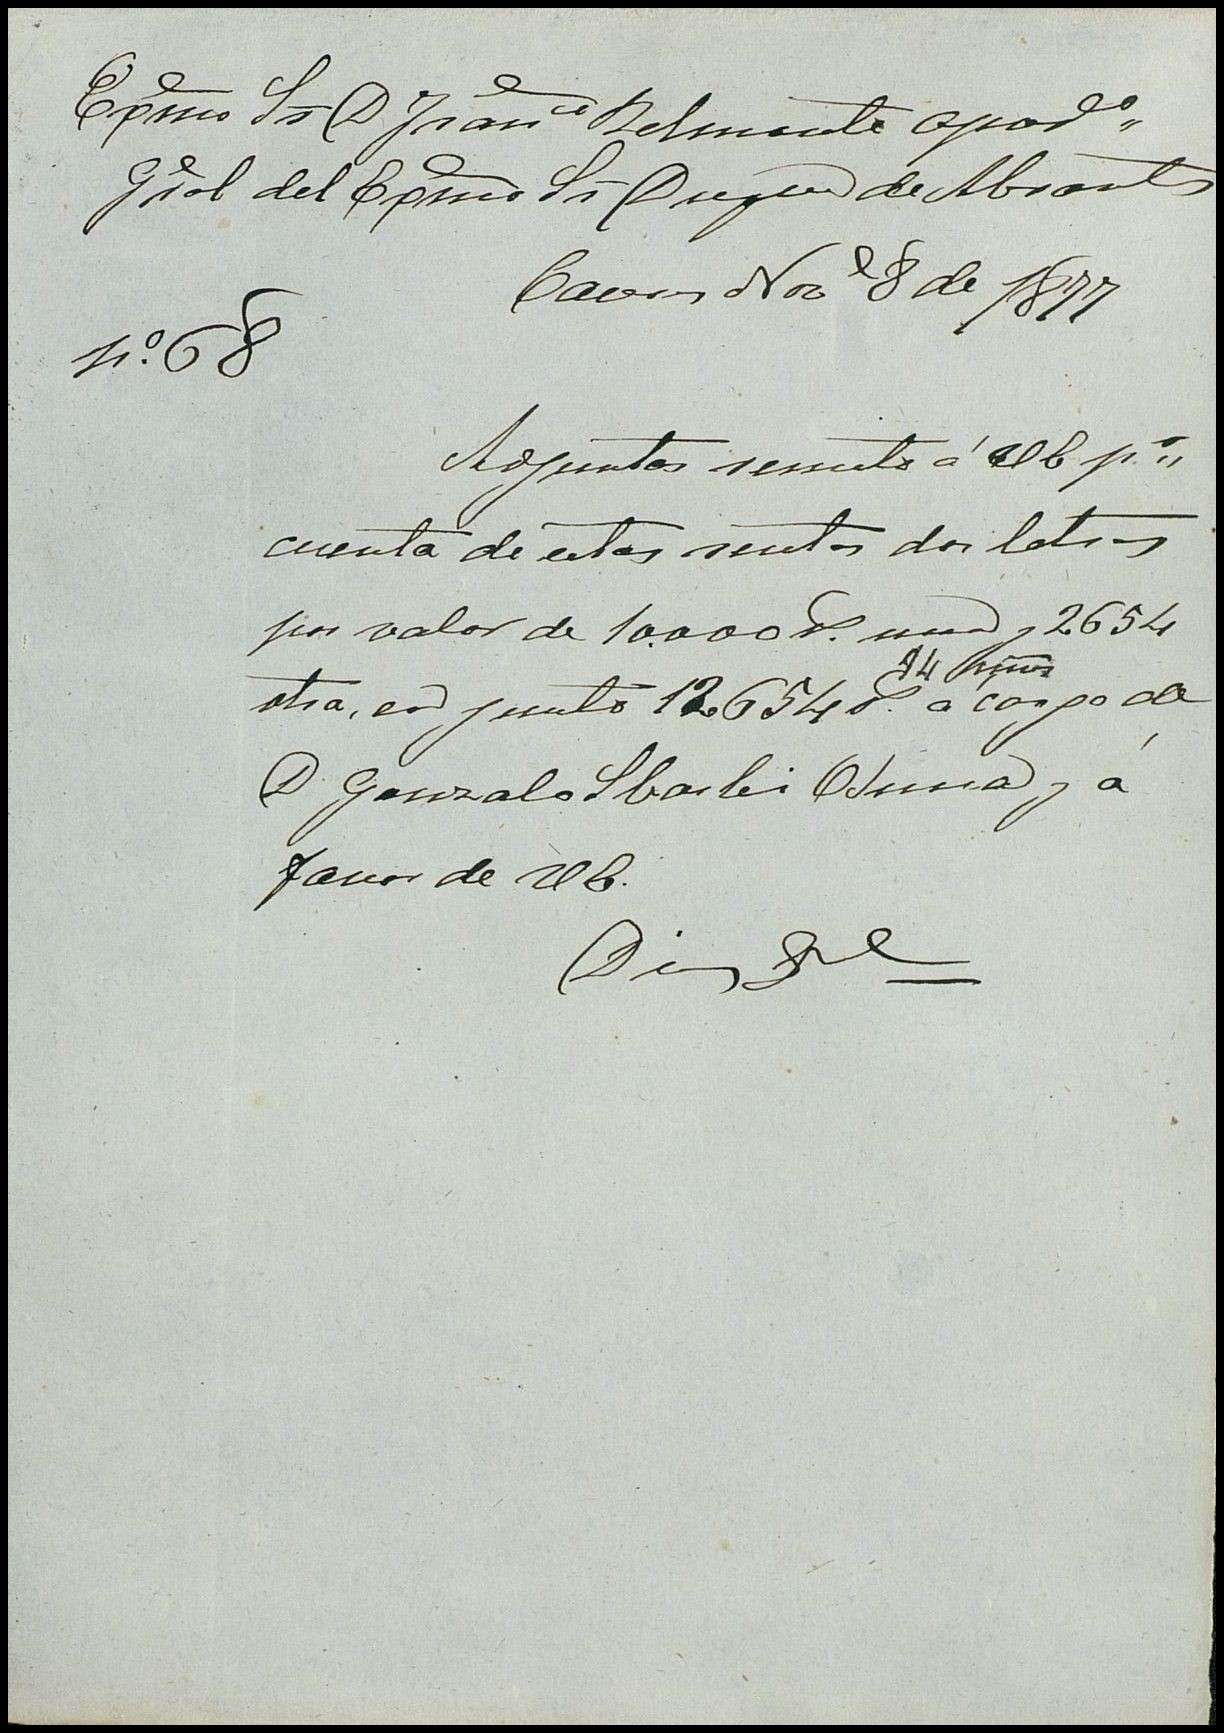 Exmo Sr D Franco Belmonte apodo
Gral del Exmo Sr Duque de Abrantes
Caceres Nove 8 de 1877
no. 68
Adjuntas remito á Vd pr
cuenta de estas rentas dos letras
por valor de 10.000 r. una y 2654
otra, en junto 12654 r. 14 mrs a cargo de
D Gonzalo Sbarbi Osuna y á
favor de Vd.
Dios Gue